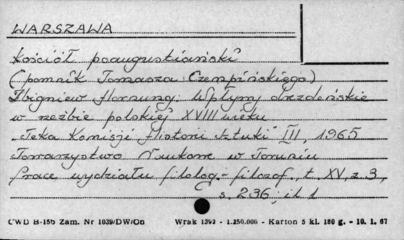 WARSZAWA
Kościół poaugustiański
(pomnik Tomasza Czempińskiego)
Zbigniew Hornung: Wpływy drezdeńskie
w rzeźbie polskiej XVIII wieku
"Teka Komisji Historii Sztuki" III, 1965
Towarzystwo Naukow w Toruniu
Prace wydziału filolog.-filozof., t. XV, z. 3,
s. 236, il 1
CWD B-156 Zam. Nr 1039/DW/On Wrak 1292 - 1.250.000 - Karton 5 kl. 180 g. - 10. 1. 67